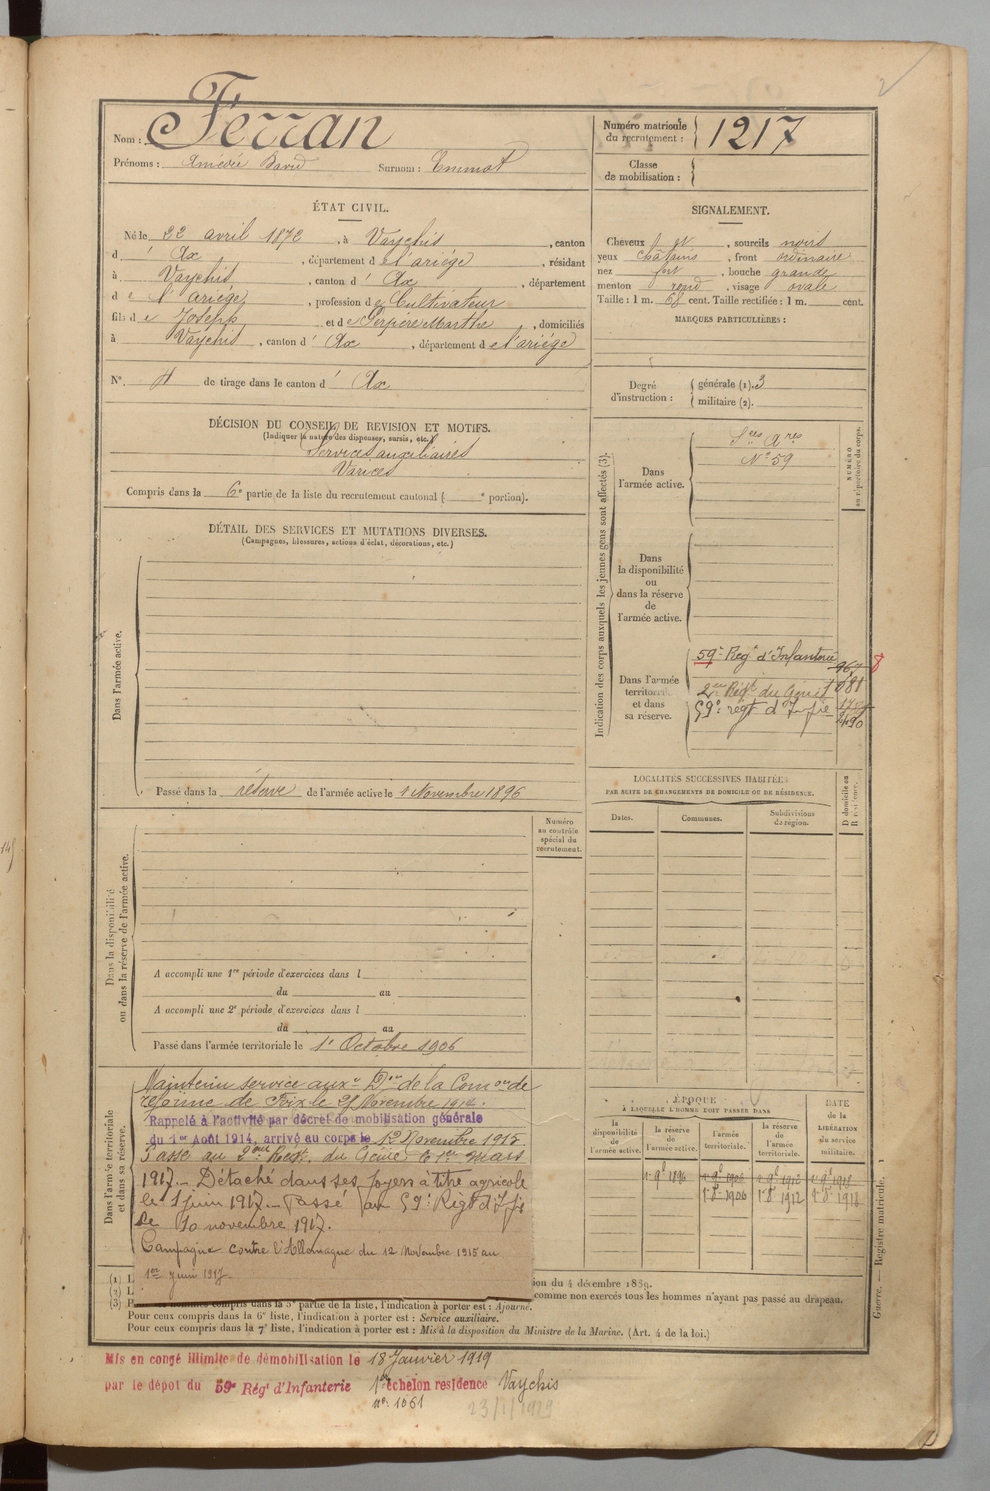 2
Nom : Ferran
Prénoms : Amédée David Surnom : Emmat
Numéro matricule du recrutement : 1217
Classe de mobilisation :
ÉTAT CIVIL.
Né le 22 avril 1872, à Vaychis, canton
d' Ax, département de l'ariège, résidant
à Vaychis, canton d' Ax, département
de l'ariège, profession de Cultivateur
fils de Joseph et de Perpère Marthe, domiciliés
à Vaychis, canton d' Ax, département de l'ariège
N° 4 de tirage dans le canton d' Ax
SIGNALEMENT.
Cheveux et, sourcils noirs
yeux châtains, front ordinaire
nez fort, bouche grande
menton rond, visage ovale
Taille : 1 m. 68 cent. Taille rectifiée : 1 m. cent.
MARQUES PARTICULIÈRES :
Degré d'instruction : générale (1). 3
militaire (2).
DÉCISION DU CONSEIL DE REVISION ET MOTIFS.
(Indiquer la nature des dispenses, sursis, etc.)
Services auxiliaires
Varices
Compris dans la 6e partie de la liste du recrutement cantonal ( e portion).
DÉTAIL DES SERVICES ET MUTATIONS DIVERSES.
(Campagnes, blessures, actions d'éclat, décorations, etc.)
Dans l'armée active.
Passé dans la réserve de l'armée active le 1 Novembre 1896
Indication des corps auxquels les jeunes gens sont affectés (3).
NUMÉRO au répertoire du corps.
Dans l'armée active.
Sces Ares
N° 59
Dans la disponibilité ou dans la réserve de l'armée active.
Dans l'armée territoriale et dans sa réserve.
59e Regt d'Infanterie 967 8
2me Régt du Génie 1081
59e régt d'Infie
2490
LOCALITÉS SUCCESSIVES HABITÉES
PAR SUITE DE CHANGEMENTS DE DOMICILE OU DE RÉSIDENCE.
Dates. Communes. Subdivisions de région. D domicile ou R résidence.
Dans la disponibilité ou dans la réserve de l'armée active.
Numéro au contrôle spécial du recrutement.
A accompli une 1re période d'exercices dans l
du au
A accompli une 2e période d'exercices dans l
du au
Passé dans l'armée territoriale le 1er Octobre 1906
Dans l'armée territoriale et dans sa réserve.
Maintenu service auxre Don de la Comon de
réforme de Foix le 25 Novembre 1914.
Rappelé à l'activité par décret de mobilisation générale
du 1er Août 1914, arrivé au corps le 12 Novembre 1915
Passé au 2me Régt. du Génie le 1er mars
1917. - Détaché dans ses foyers à titre agricole
le 1 juin 1917. - Passé au 59e Régt d'Infie
le 10 novembre 1917.
Campagne contre l'Allemagne du 12 Novembre 1915 au
1er Juin 1917.
ÉPOQUE
À LAQUELLE L'HOMME DOIT PASSER DANS
la disponibilité de l'armée active. la réserve de l'armée active. l'armée territoriale. la réserve de l'armée territoriale. DATE de la LIBÉRATION du service militaire.
1er 9bre 1896 1er 9bre 1906 1er 9bre 1912 1er 9bre 1918
1er 8bre 1906 1er 8bre 1912 1er 8bre 1918
(1) L
(2) L
(3) P
ion du 4 décembre 1889.
comme non exercés tous les hommes n'ayant pas passé au drapeau.
hommes compris dans la 5e partie de la liste, l'indication à porter est : Ajourné.
Pour ceux compris dans la 6e liste, l'indication à porter est : Service auxiliaire.
Pour ceux compris dans la 7e liste, l'indication à porter est : Mis à la disposition du Ministre de la Marine. (Art. 4 de la loi.)
Guerre. — Registre matricule. 1
Mis en congé illimité de démobilisation le 18 Janvier 1919
par le dépôt du 59e Régt d'Infanterie 1er échelon residence Vaychis
n° 1061
23/1/1929